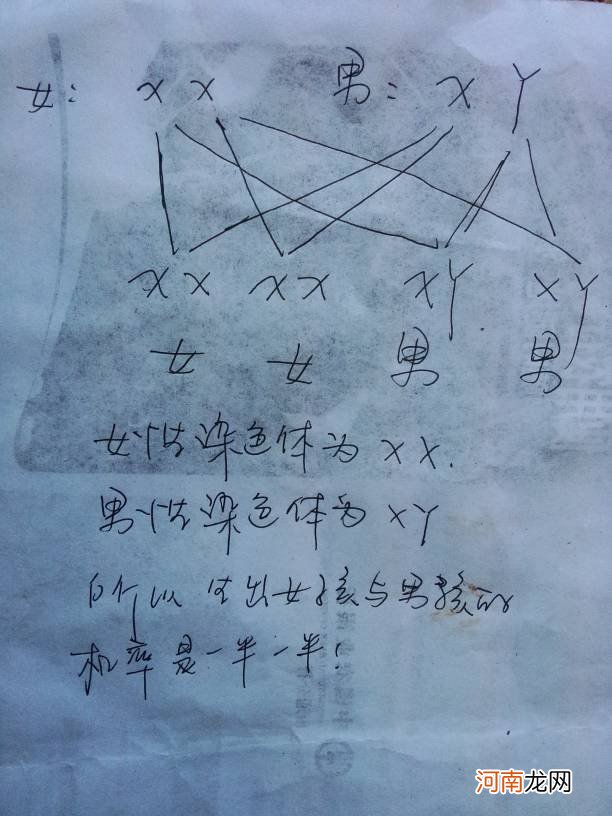 女: X X 男: X Y
XX XX XY XY
女 女 男 男
女性染色体为XX.
男性染色体为XY
所以生出女孩与男孩的
机率是一半一半!
河南龙网